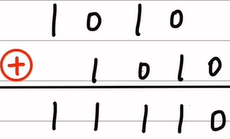 1 0 1 0
+ 1 0 1 0
1 1 1 1 0